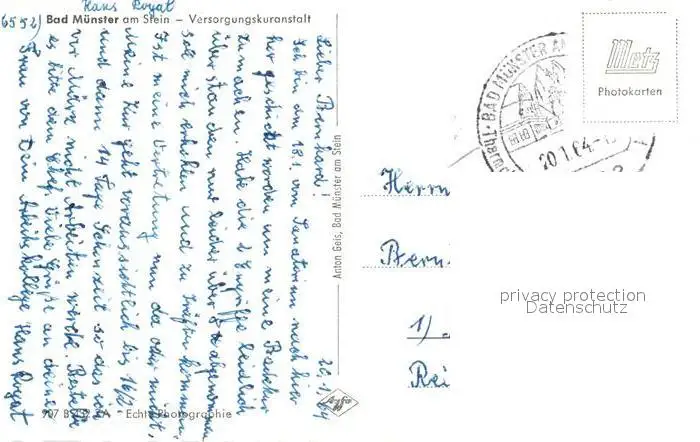 Hans Royat
6552) Bad Münster am Stein – Versorgungskuranstalt
Metz
Photokarten
BAD MÜNSTER AM
20.1.64
20.1.64
Lieber Bernhard!
Ich bin am 18.1. vom Sanatorium nach hier
her geschickt worden um meine Badekur
zu machen. Habe die 2 Eingriffe leidlich
überstanden nur leider über 8 abgenommen
soll mich erholen und zu Kräften kommen.
Ist meine Vertretung nun da oder nicht,
Meine Kur geht voraussichtlich bis 16/2
und dann 14 Tage Schonzeit so das ich
vor März nicht Arbeiten werde. Bestelle
es bitte dem Chef. Viele Grüße an deine
Frau von Dein Arbeitskollege Hans Royat
Anton Geis, Bad Münster am Stein
Agfa
Herrn
Bern
1)
Rei
privacy protection
Datenschutz
907 Echte Photographie